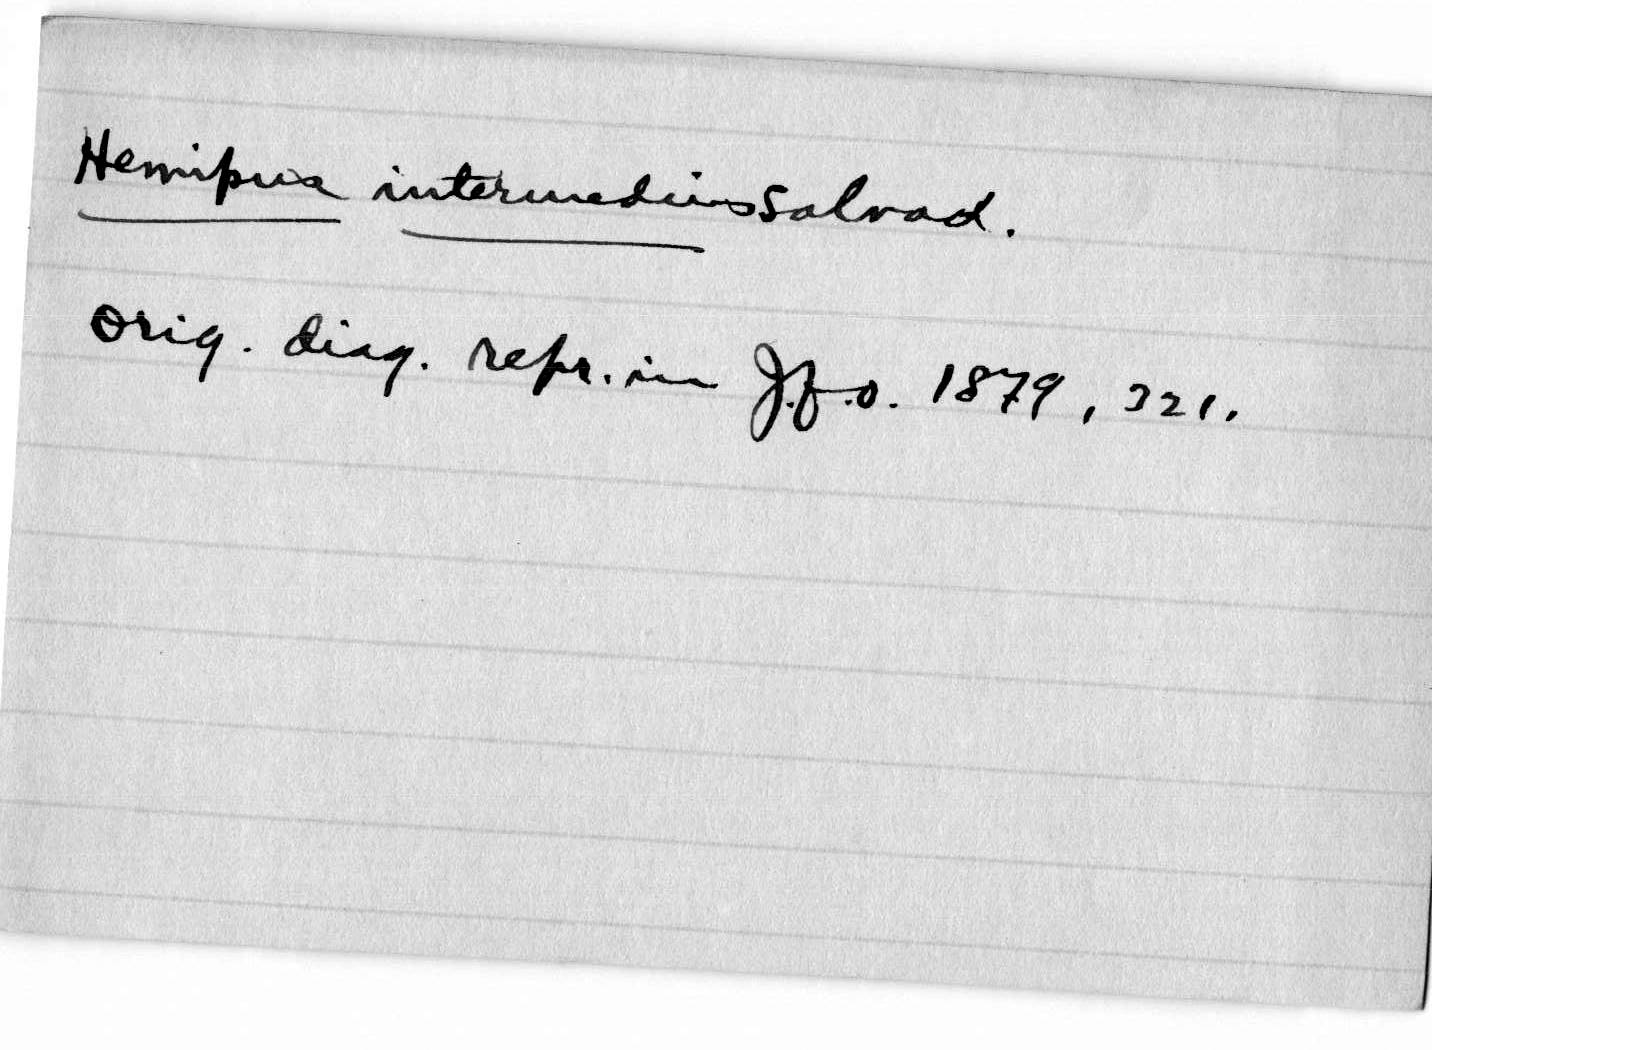 Hemipus intermedius Salvad.
Orig. diag. repr. in J.f.O. 1879, 321.